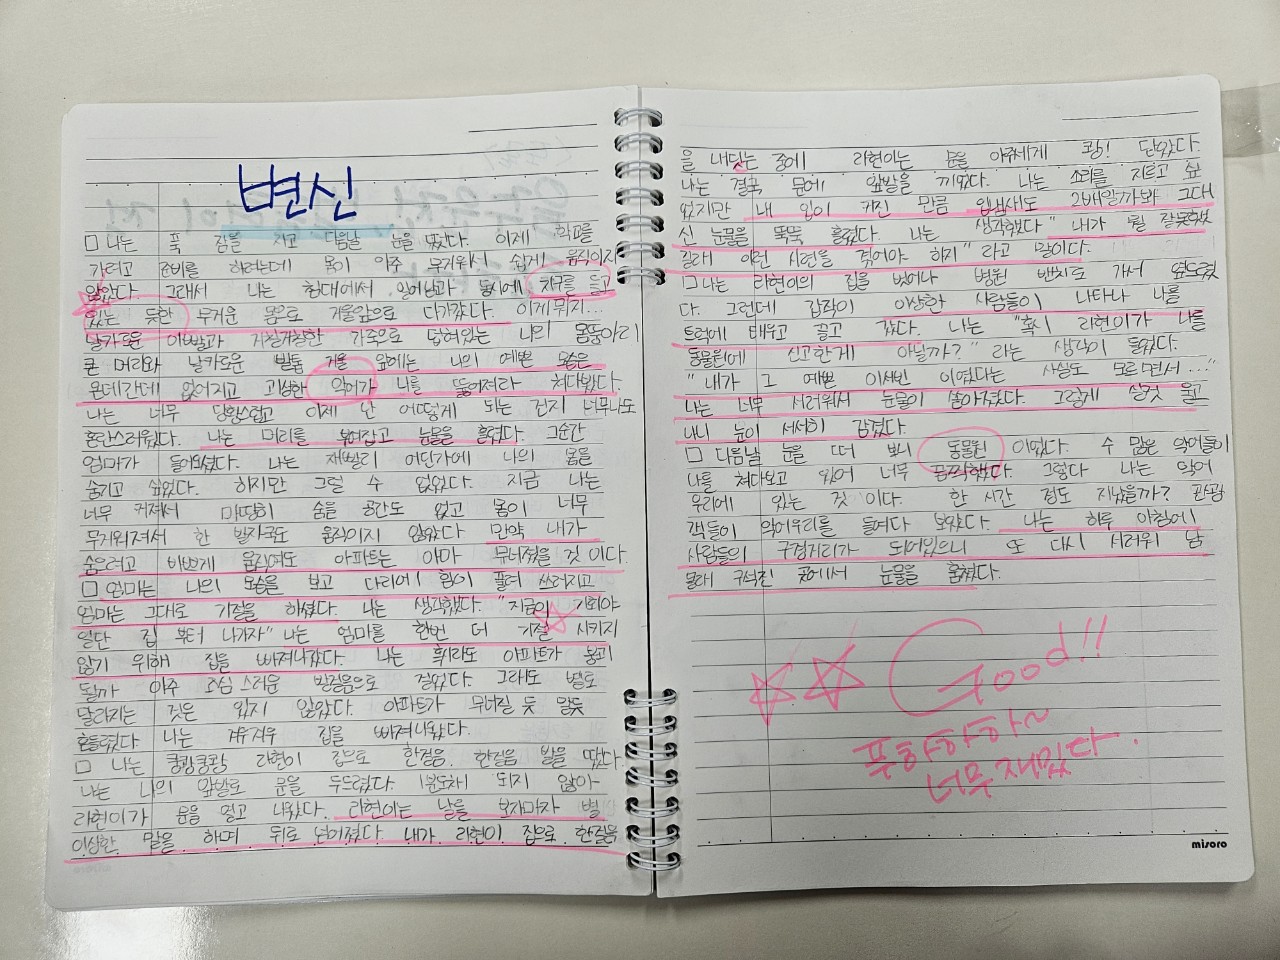 변신
□ 나는 푹 잠을 자고 다음날 눈을 떴다. 이제 학교를
가려고 준비를 하려는데 몸이 아주 무거워서 쉽게 움직이지
않았다. 그래서 나는 침대에서 일어남과 동시에 지구를 들고
있는 듯한 무거운 몸으로 거울앞으로 다가갔다. 이게뭐지...
날카로운 이빨과 거칠거칠한 가죽으로 덮혀있는 나의 몸뚱아리
큰 머리와 날카로운 발톱 거울 앞에는 나의 예쁜 모습은
온데간데 없어지고 괴상한 악어가 나를 뚫어져라 쳐다봤다.
나는 너무 당황스럽고 이제 난 어떻게 되는 건지 너무나도
혼란스러웠다. 나는 머리를 부여잡고 눈물을 흘렸다. 그순간
엄마가 들어오셨다. 나는 재빨리 어딘가에 나의 몸을
숨기고 싶었다. 하지만 그럴 수 없었다. 지금 나는
너무 커져서 마땅히 숨을 공간도 없고 몸이 너무
무거워져서 한 발자국도 움직이지 않았다 만약 내가
숨으려고 바쁘게 움직여도 아파트는 아마 무너졌을 것 이다.
□ 엄마는 나의 모습을 보고 다리에 힘이 풀려 쓰러지고
엄마는 그대로 기절을 하셨다. 나는 생각했다. "지금이 기회야
일단 집 부터 나가자" 나는 엄마를 한번 더 기절 시키지
않기 위해 집을 빠져나갔다. 나는 혹시라도 아파트가 붕괴
될까 아주 조심 스러운 발걸음으로 걸었다. 그래도 별로
달라지는 것은 있지 않았다. 아파트가 무너질 듯 말듯
흔들렸다. 나는 겨우겨우 집을 빠져나왔다.
□ 나는 쿵쾅쿵쾅 라현이 집으로 한걸음. 한걸음 발을 뗐다.
나는 나의 앞발로 문을 두드렸다. 1분도채 되지 않아
라현이가 문을 열고 나왔다. 라현이는 날을 보자마자 별
이상한 말을 하며 뒤로 넘어졌다. 내가 라현이 집으로 한걸음
을 내딛는 중에 라현이는 문을 아주세게 쾅! 닫았다.
나는 결국 문에 앞발을 끼였다. 나는 소리를 지르고 싶
었지만 내 입이 커진 만큼 입냄새도 2배일까봐 그대
신 눈물을 뚝뚝 흘렸다. 나는 생각했다 "내가 뭘 잘못했
길래 이런 시련을 겪어야 하지" 라고 말이다.
□ 나는 라현이의 집을 벗어나 병원 벤치로 가서 엎드렸
다. 그런데 갑작이 이상한 사람들이 나타나 나를
트럭에 태우고 끌고 갔다. 나는 "혹시 라현이가 나를
동물원에 신고한게 아닐까?" 라는 생각이 들었다.
"내가 그 예쁜 이세빈 이였다는 사실도 모르면서...."
나는 너무 서러워서 눈물이 쏟아졌다. 그렇게 실컷 울고
나니 눈이 서서히 감겼다.
□ 다음날 눈을 떠 보니 동물원 이였다. 수 많은 악어들이
나를 쳐다보고 있어 너무 끔찍했다. 그렇다 나는 악어
우리에 있는 것 이다. 한 시간 정도 지났을까? 관광
객들이 악어우리를 들여다 보았다. 나는 하루 아침에
사람들의 구경거리가 되어있으니 또 다시 서러워 남
몰래 구석진 곳에서 눈물을 훔쳤다.
Good!!
푸하하하~
너무 재밌다.
misoro